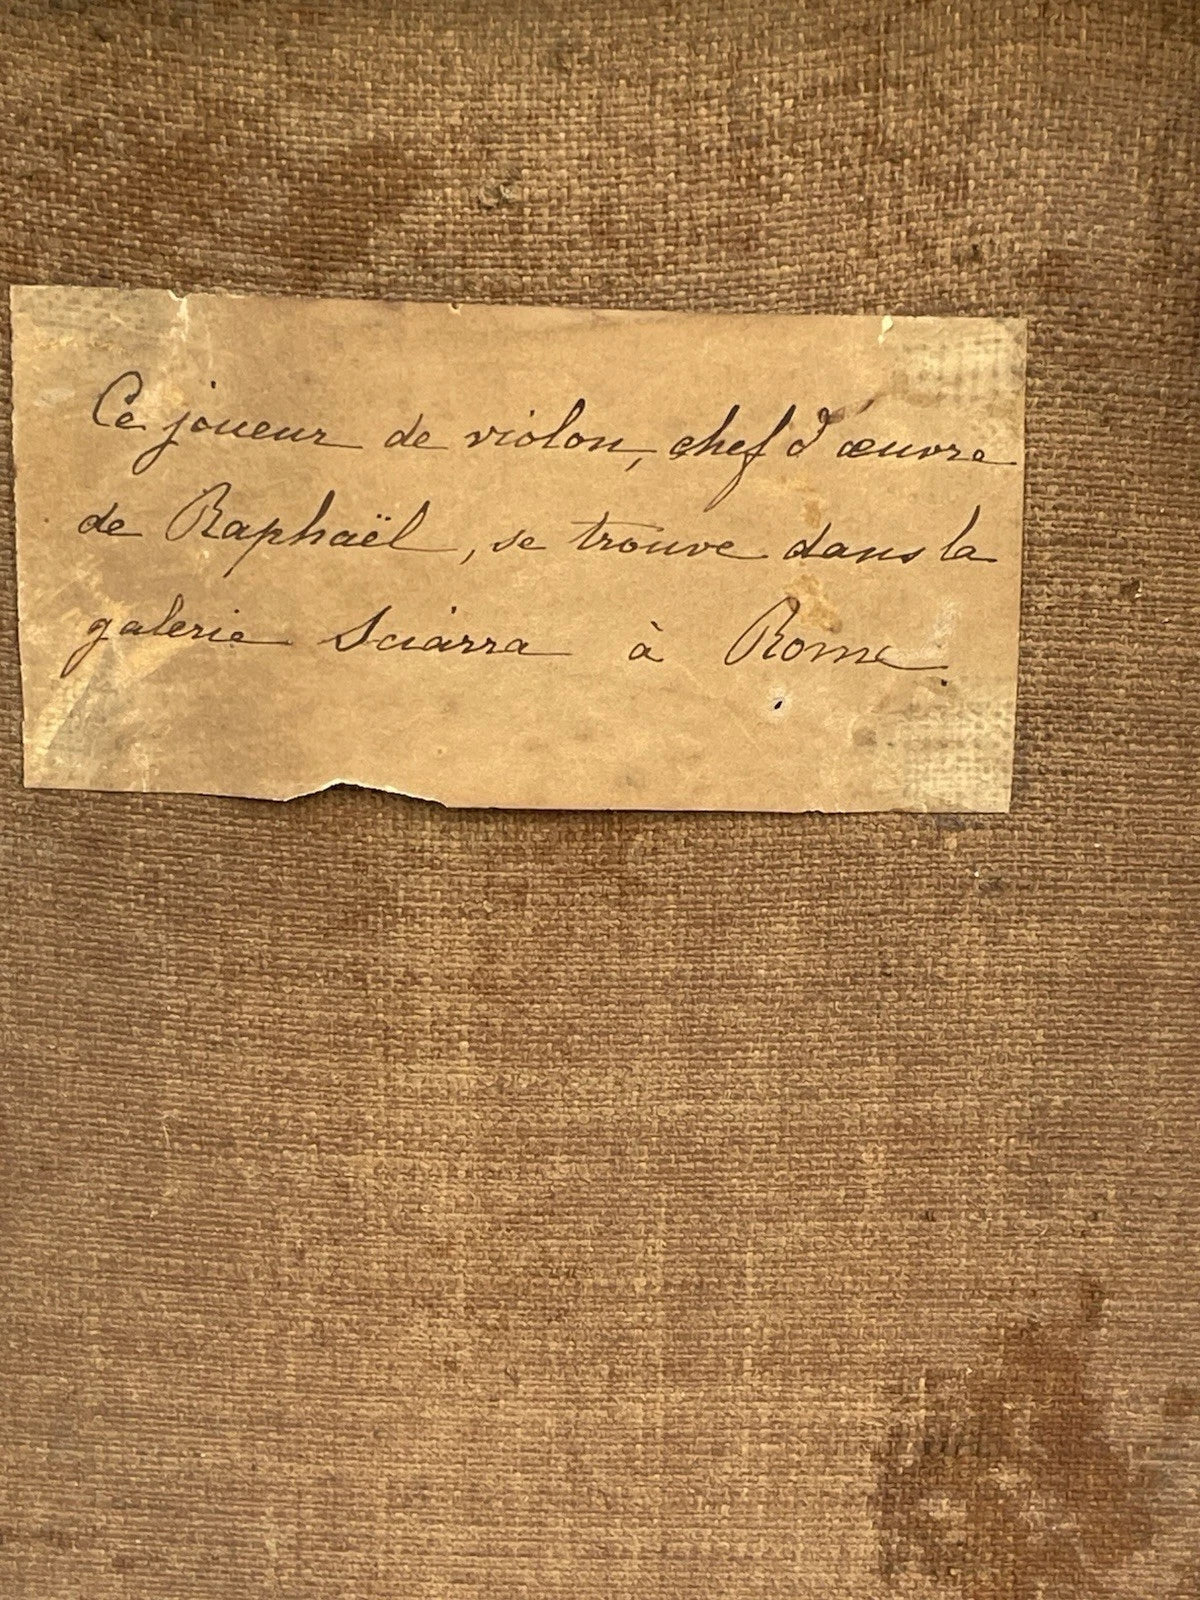 Ce joueur de violon, chef d'œuvre
de Raphaël, se trouve dans la
galerie Sciarra à Rome.